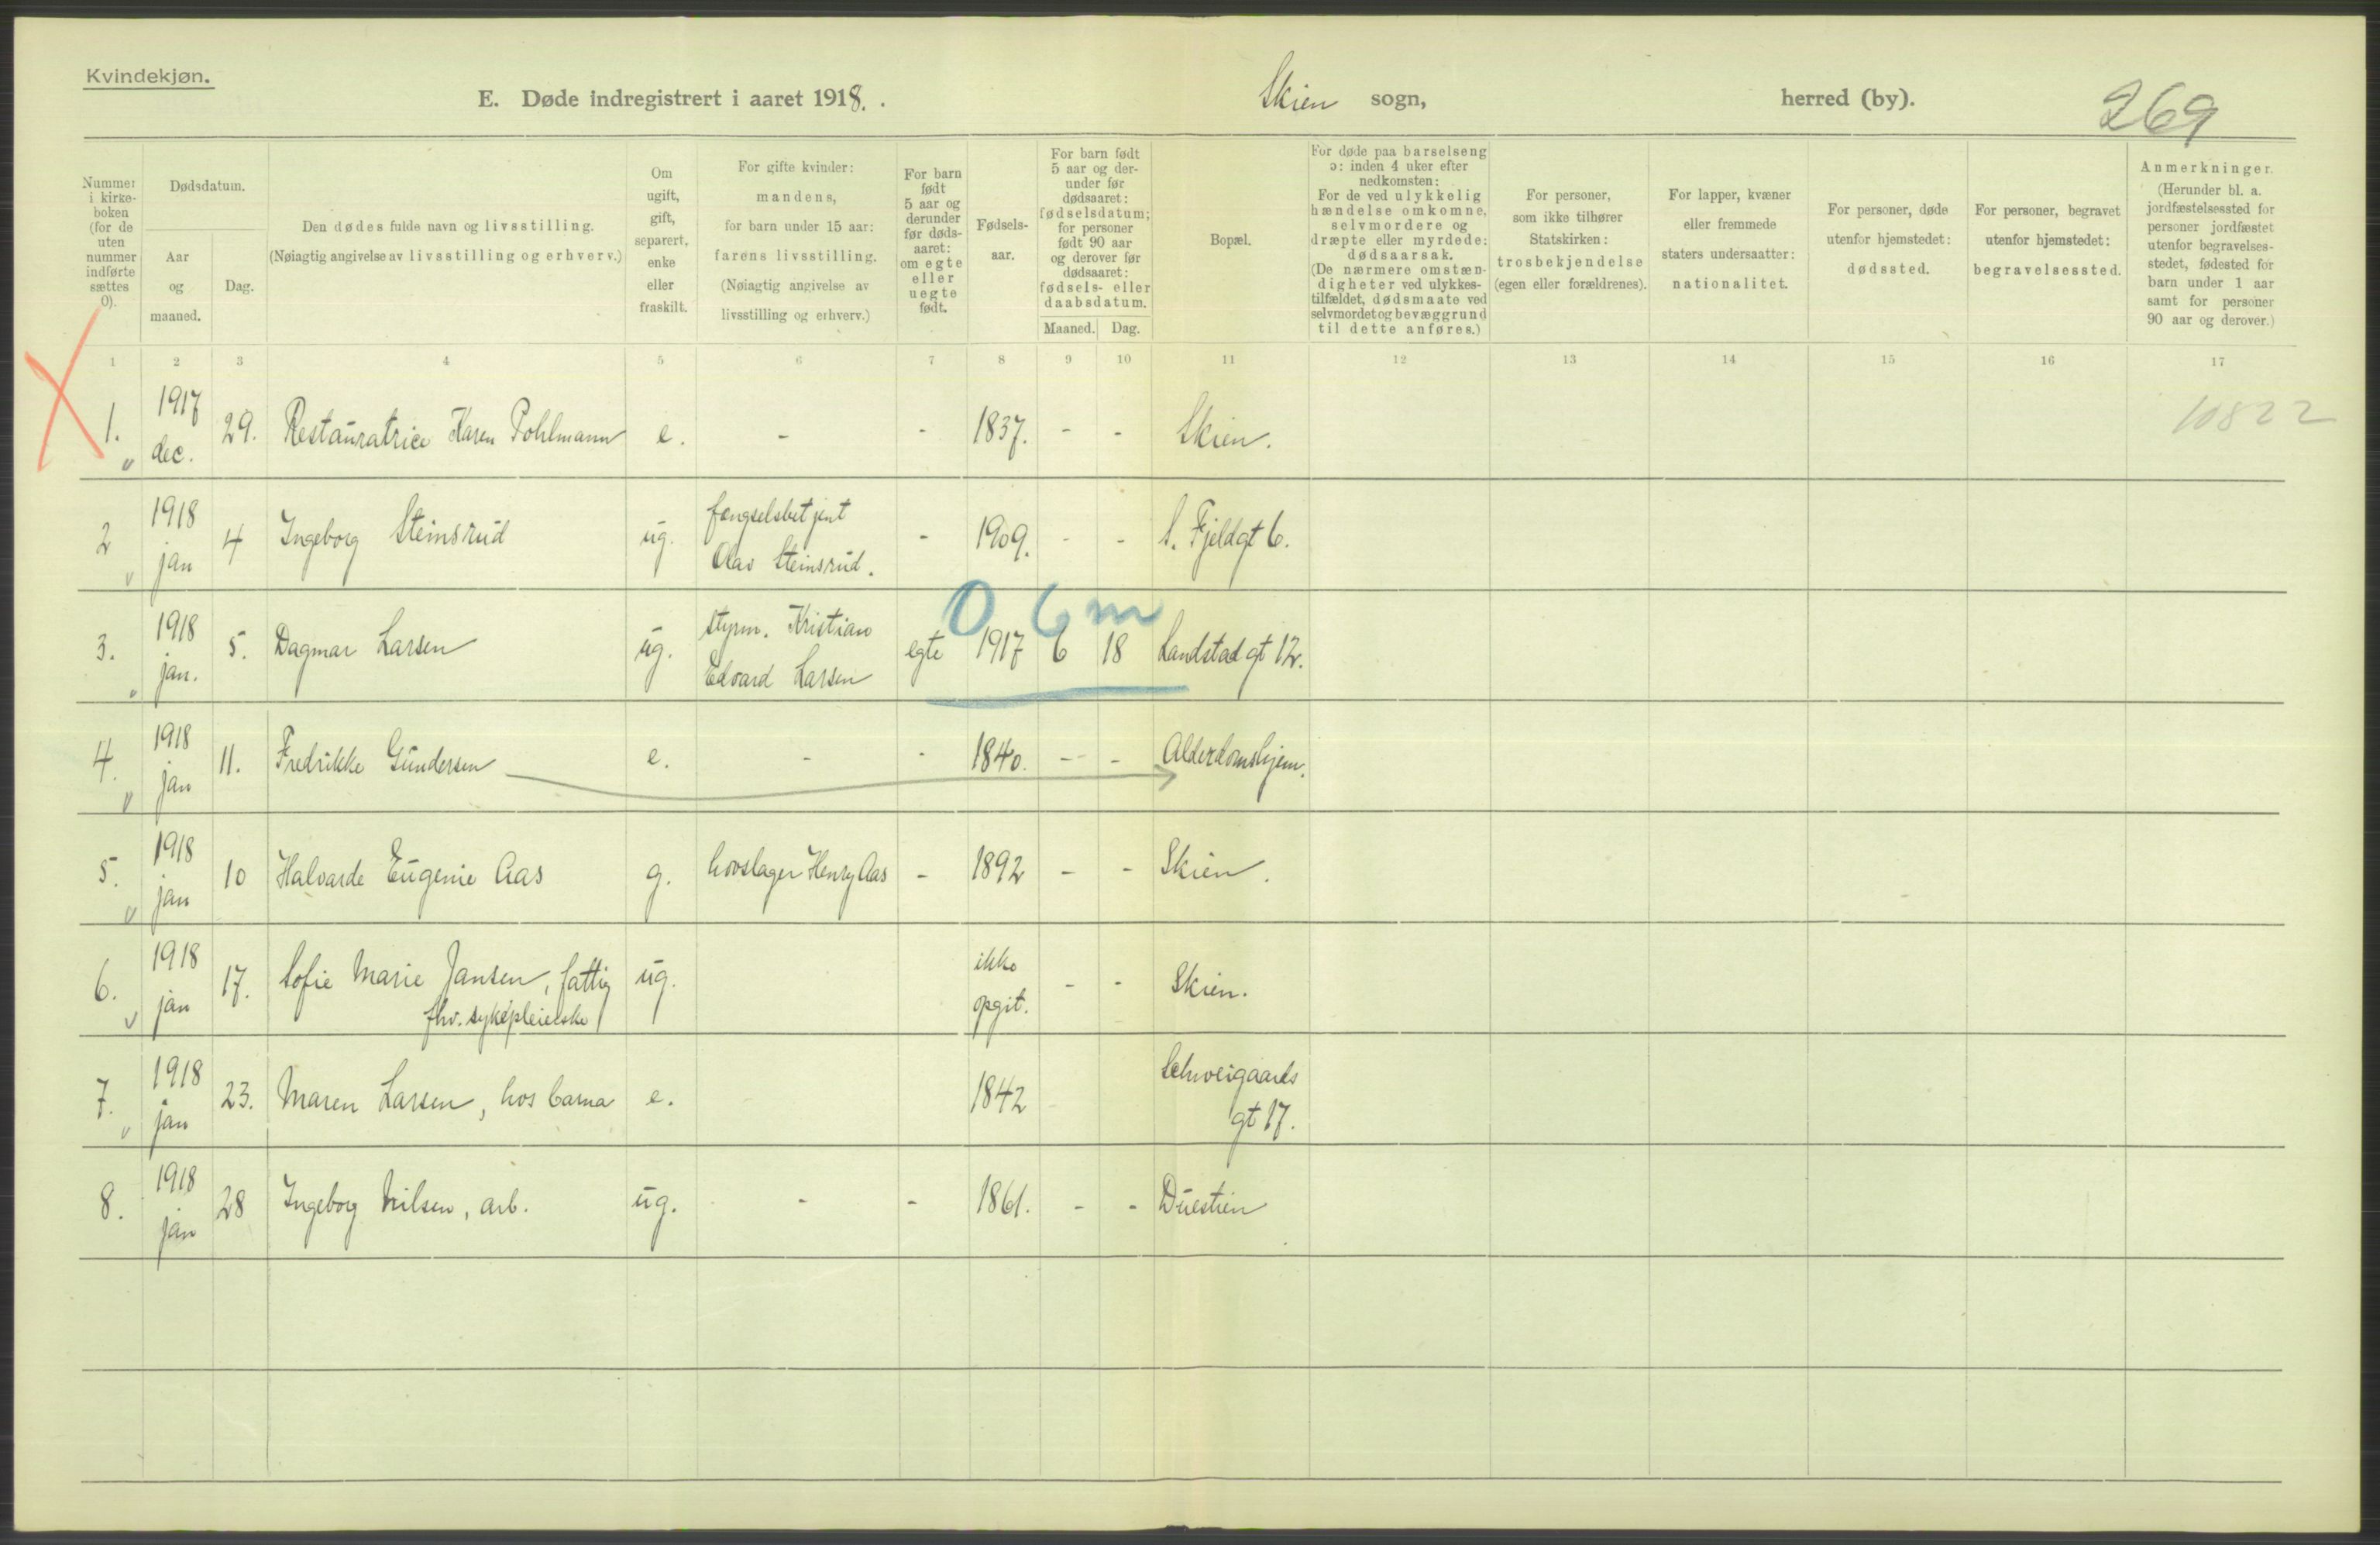 Kvindekjøn.
E. Døde indregistrert i aaret 1918. . Skien sogn, herred (by). 269
Nummer i kirkeboken (for de uten nummer indførte sættes 0).
Dødsdatum.
Aar og maaned.
Dag.
Den dødes fulde navn og livsstilling.
(Nøiagtig angivelse av livsstilling og erhverv.)
Om ugift, gift, separert, enke eller fraskilt.
For gifte kvinder:
mandens,
for barn under 15 aar:
farens livsstilling.
(Nøiagtig angivelse av
livsstilling og erhverv.)
For barn født 5 aar og derunder før dødsaaret: om egte eller uegte født.
Fødselsaar.
For barn født 5 aar og derunder før dødsaaret: fødselsdatum; for personer født 90 aar og derover før dødsaaret: fødsels- eller daabsdatum.
Maaned. Dag.
Bopæl.
For døde paa barselseng
ɔ: inden 4 uker efter
nedkomsten:
For de ved ulykkelig
hændelse omkomne,
selvmordere og
dræpte eller myrdede:
dødsaarsak.
(De nærmere omstæn-
digheter ved ulykkes-
tilfældet, dødsmaate ved
selvmordet og bevæggrund
til dette anføres.)
For personer,
som ikke tilhører
Statskirken:
trosbekjendelse
(egen eller forældrenes).
For lapper, kvæner
eller fremmede
staters undersaatter:
nationalitet.
For personer, døde
utenfor hjemstedet:
dødssted.
For personer, begravet
utenfor hjemstedet:
begravelsessted.
Anmerkninger.
(Herunder bl. a.
jordfæstelsessted for
personer jordfæstet
utenfor begravelses-
stedet, fødested for
barn under 1 aar
samt for personer
90 aar og derover.)
1 2 3 4 5 6 7 8 9 10 11 12 13 14 15 16 17
1. 1917 dec. 29. Restauratrice Karen Pohlmann e. - - 1837. - - Skien. 10822
2 1918 jan 4 Ingeborg Steinsrud ug. fængselsbetjent Olav Steinsrud. - 1909. - - S. Fjeldgt 6.
0 6 m
3. 1918 jan. 5. Dagmar Larsen ug. styrm. Kristian Edvard Larsen egte 1917 6 18 Landstad gt 12.
4. 1918 jan 11. Fredrikke Gundersen e. - - 1840. - - Alderdomshjem.
5. 1918 jan 10 Halvarde Eugenie Aas g. hovslager Henry Aas - 1892 - - Skien.
6. 1918 jan 17. Sofie Marie Jansen, fattig ug. ikke opgit. - - Skien.
fhv. sykepleierske
7. 1918 jan 23. Maren Larsen, hos barna e. 1842 Schweigaards gt 17.
8. 1918 jan 28 Ingeborg Nilsen, arb. ug. - - 1861. - - Duestien